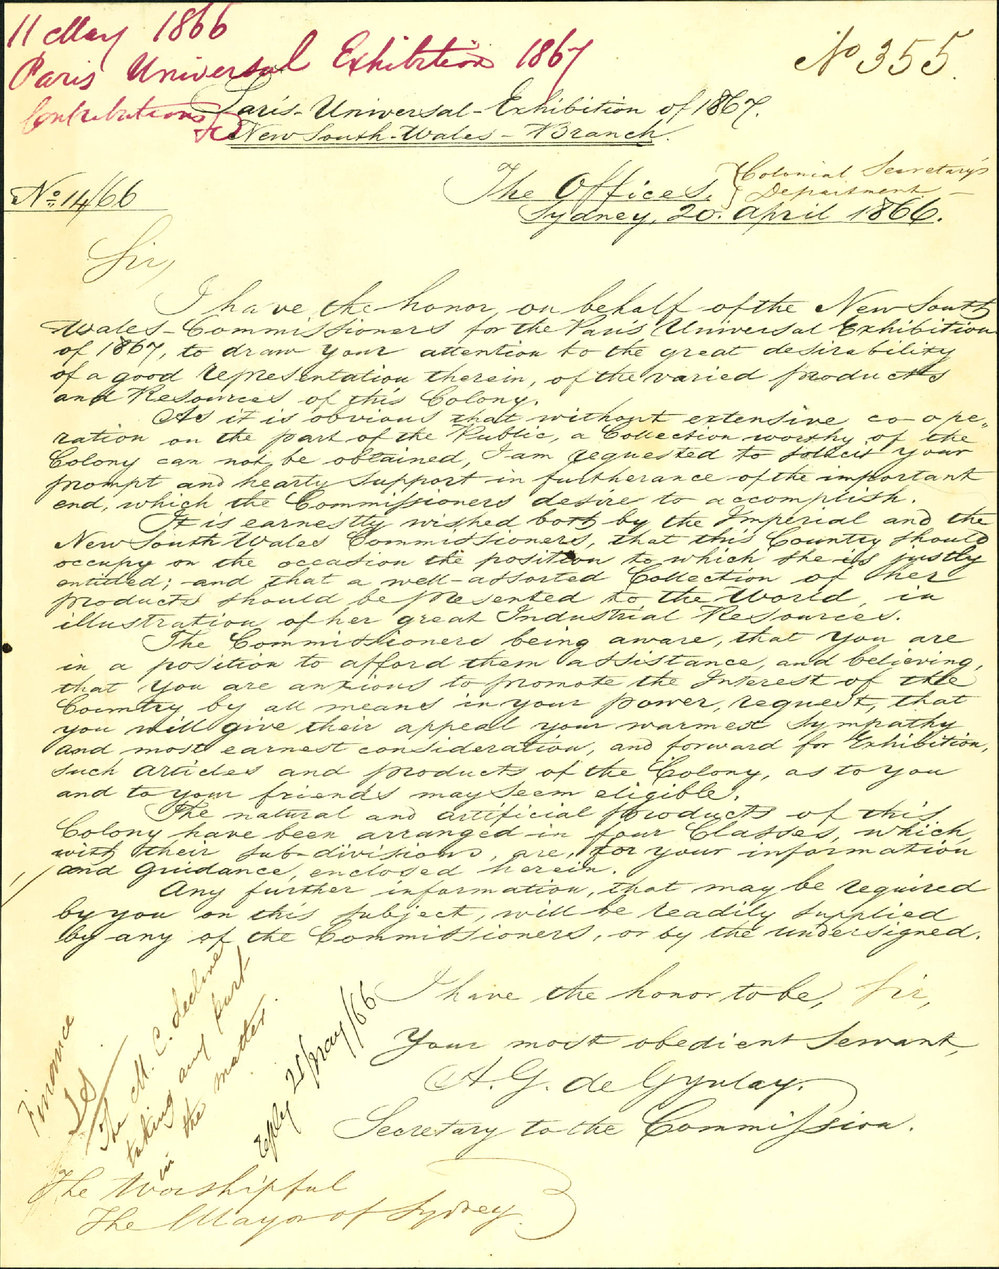 11 May 1866
Paris Universal Exhibition 1867
Contributions
No 355.
Paris-Universal-Exhibition of 1867.
New South-Wales-Branch.
No 14/66
The Offices. Colonial Secretary's
Department
Sydney, 20. April 1866.
Sir,
I have the honor, on behalf of the New South
Wales-Commissioners for the Paris Universal Exhibition
of 1867, to draw your attention to the great desirability
of a good representation therein, of the varied products
and Resources of this Colony.
As it is obvious that without extensive co-ope-
ration on the part of the Public, a Collection worthy of the
Colony can not be obtained, I am requested to solicit your
prompt and hearty support in furtherance of the important
end, which the Commissioners desire to accomplish.
It is earnestly wished both by the Imperial and the
New South Wales Commissioners, that this Country should
occupy on the occasion the position to which she is justly
entitled; and that a well-assorted Collection of her
products should be presented to the World, in
illustration of her great Industrial Resources.
The Commissioners being aware, that you are
in a position to afford them assistance, and believing,
that you are anxious to promote the Interest of the
Country by all means in your power, request, that
you will give their appeal your warmest sympathy
and most earnest consideration, and forward for Exhibition,
such articles and products of the Colony, as to you
and to your friends may seem eligible.
The natural and artificial products of this
Colony have been arranged in four Classes, which
with their sub-divisions, are, for your information
and guidance, enclosed herein.
Any further information, that may be required
by you on this subject, will be readily supplied
by any of the Commissioners, or by the undersigned.
I have the honor to be, Sir,
Your most obedient Servant,
A. G. de Gyulay.
Secretary to the Commission.
Finance
The M. C. decline
taking any part
in the matter.
Reply 25/May/66
The Worshipful
The Mayor of Sydney.